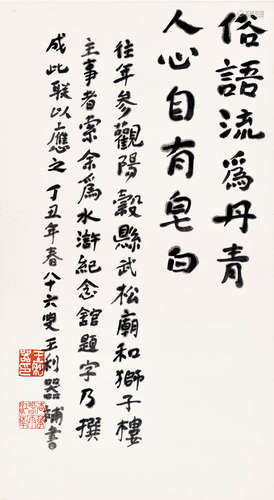 俗語流爲丹青
人心自有皂白
往年參觀陽穀縣武松廟和獅子樓
主事者索余爲水滸紀念館題字乃撰
成此联以應之丁丑年春八十六叟王利器補書